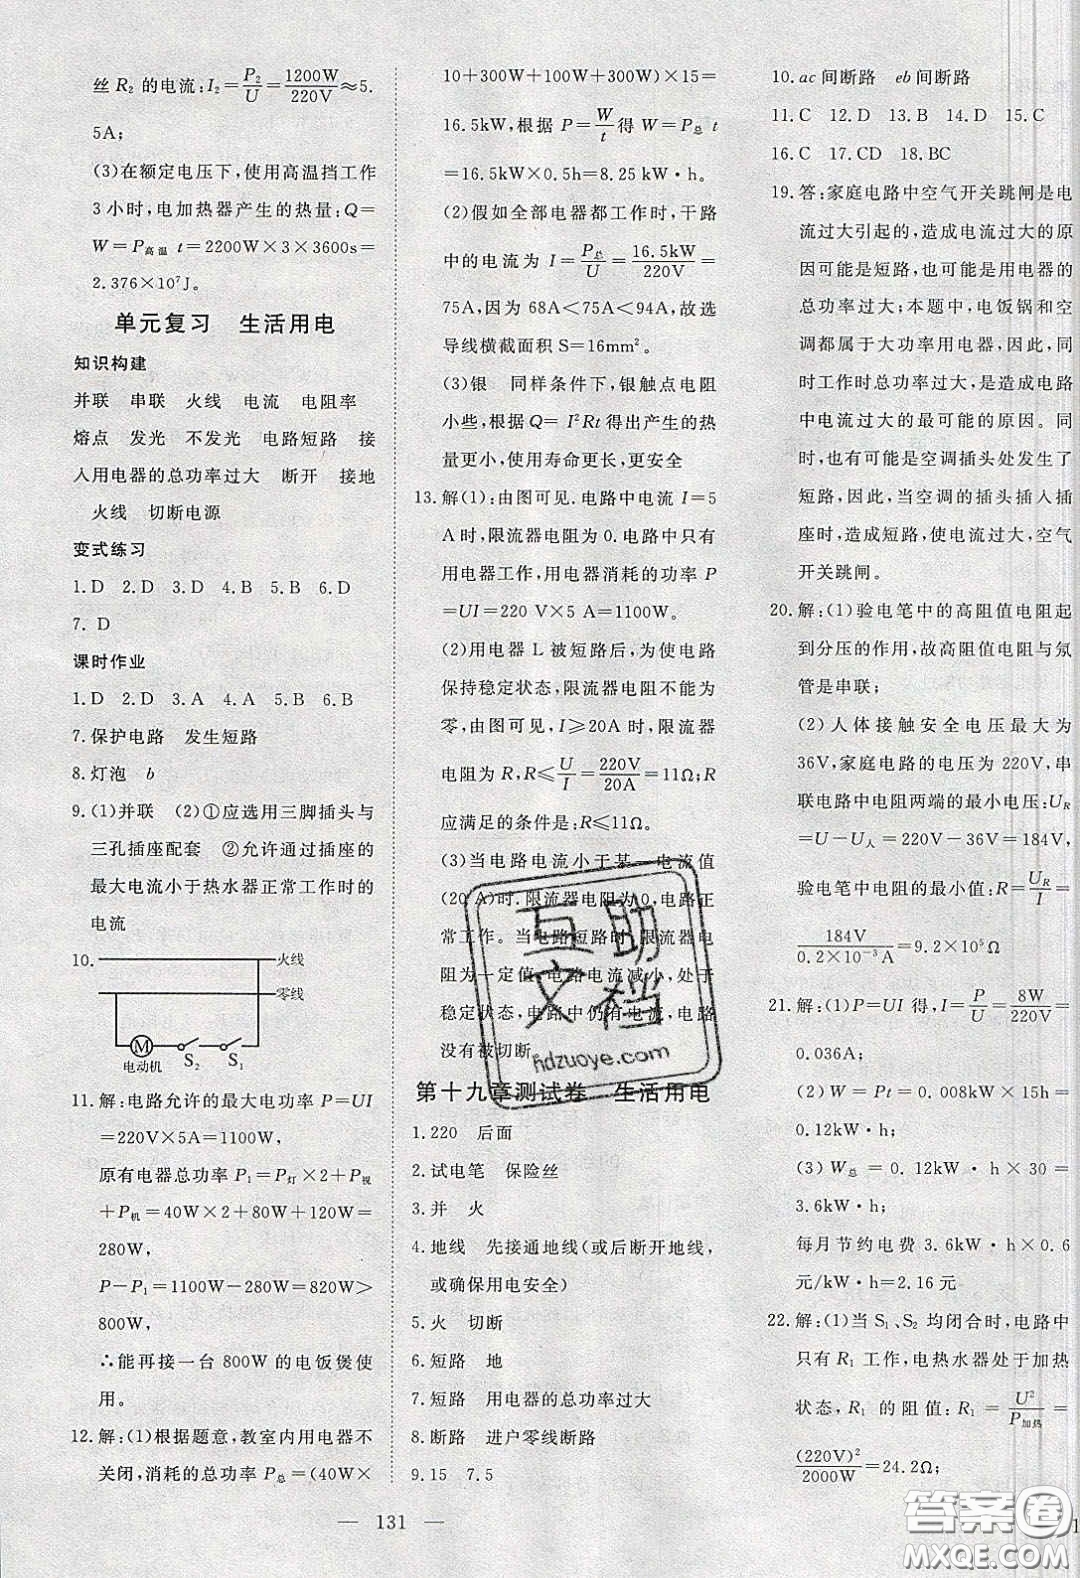 丝 R₂ 的电流:I₂=P₂/U=1200W/220V≈5.
5A;
(3)在额定电压下,使用高温挡工作
3小时,电加热器产生的热量:Q=
W=P高温 t=2200W×3×3600s=
2.376×10⁷J。
单元复习 生活用电
知识构建
并联 串联 火线 电流 电阻率
熔点 发光 不发光 电路短路 接
入用电器的总功率过大 断开 接地
火线 切断电源
变式练习
1.D 2.D 3.D 4.B 5.B 6.D
7. D
课时作业
1.D 2.D 3.A 4.A 5.B 6.B
7.保护电路 发生短路
8.灯泡 b
9.(1)并联 (2)①应选用三脚插头与
三孔插座配套 ②允许通过插座的
最大电流小于热水器正常工作时的
电流
10.
火线
零线
M
电动机 S₂ S₁
11.解:电路允许的最大电功率 P=UI
=220V×5A=1100W,
原有电器总功率 P₁=P灯×2+P视
+P机=40W×2+80W+120W=
280W,
P-P₁=1100W-280W=820W>
800W,
∴能再接一台 800W 的电饭煲使
用。
12.解:(1)根据题意,教室内用电器不
关闭,消耗的总功率 P总=(40W×
10+300W+100W+300W)×15=
16.5kW,根据 P=W/t得 W=P总 t
=16.5kW×0.5h=8.25 kW·h。
(2)假如全部电器都工作时,干路
中的电流为 I=P总/U=16.5kW/220V=
75A,因为 68A<75A<94A,故选
导线横截面积 S=16mm²。
(3)银 同样条件下,银触点电阻
小些,根据 Q=I²Rt得出产生的热
量更小,使用寿命更长,更安全
13.解(1):由图可见.电路中电流 I=5
A时,限流器电阻为0.电路中只有
用电器工作,用电器消耗的功率 P
=UI=220 V×5 A=1100W。
(2)用电器 L 被短路后,为使电路
保持稳定状态,限流器电阻不能为
零,由图可见,I≥20A时,限流器
电阻为 R,R≤U/I=220V/20A=11Ω;R
应满足的条件是:R≤11Ω。
(3)当电路电流小于某一电流值
(20 A)时.限流器电阻为0,电路正
常工作。当电路短路时,限流器电
阻为一定值,电路电流减小,处于
稳定状态,电路中仍有电流,电路
没有被切断
第十九章测试卷 生活用电
1.220 后面
2.试电笔 保险丝
3.并 火
4.地线 先接通地线(或后断开地线,
或确保用电安全)
5.火 切断
6.短路 地
7.短路 用电器的总功率过大
8.断路 进户零线断路
9.15 7.5
10.ac间断路 eb间断路
11.C 12.D 13.B 14.D 15.C
16.C 17.CD 18.BC
19.答:家庭电路中空气开关跳闸是电
流过大引起的,造成电流过大的原
因可能是短路,也可能是用电器的
总功率过大;本题中,电饭锅和空
调都属于大功率用电器,因此,同
时工作时总功率过大,是造成电路
中电流过大的最可能的原因。同
时,也有可能是空调插头处发生了
短路,因此,当空调的插头插入插
座时,造成短路,电流过大,空气
开关跳闸。
20.解:(1)验电笔中的高阻值电阻起
到分压的作用,故高阻值电阻与氖
管是串联;
(2)人体接触安全电压最大为
36V,家庭电路的电压为220V,串
联电路中电阻两端的最小电压:U_R
=U-U人=220V-36V=184V,
验电笔中电阻的最小值:R=U_R/I=
184V/0.2×10⁻³A=9.2×10⁵Ω
21.解:(1)P=UI 得,I=P/U=8W/220V=
0.036A;
(2)W = Pt = 0.008kW × 15h =
0.12kW·h;
(3) W总 = 0.12kW·h × 30 =
3.6kW·h;
每月节约电费 3.6kW·h×0.6
元/kW·h=2.16元
22.解:(1)当 S₁、S₂ 均闭合时,电路中
只有 R₁ 工作,电热水器处于加热
状态,R₁ 的阻值:R₁=U²/P加热=
(220V)²/2000W=24.2Ω;
131
互助
文档
hdzuoye.com
答案圈
MXQE.COM